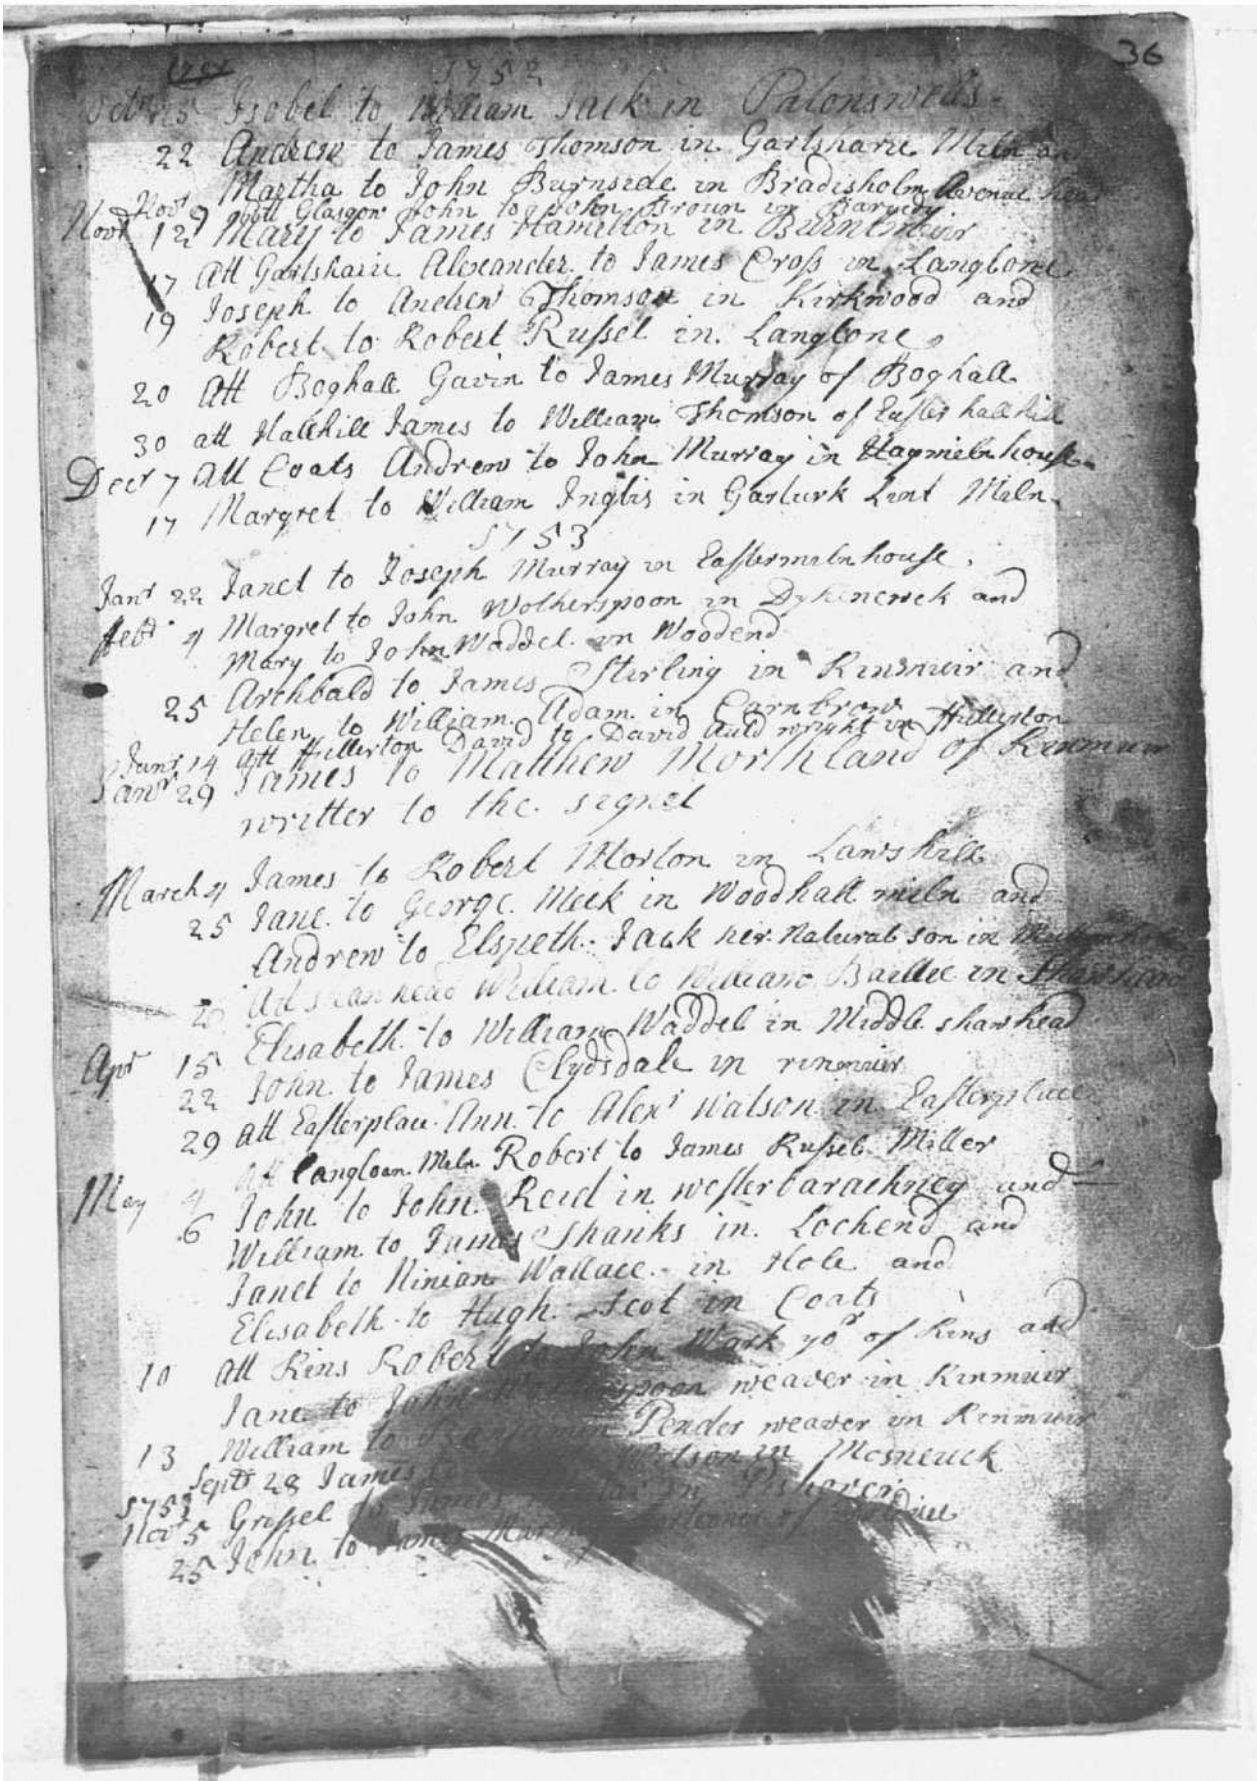 36
1752
Octr 15 Isobel to William Jack in Patonswells
22 Andrew to James Thomson in Gartsharie Miln an
Martha to John Burnside in Bradisholm Avenue head
Novr 9 att Glasgow John to John Broun in Bargedy
Novr 12 Mary to James Hamilton in Burntmuir
17 att Gartsharie Alexander to James Cross in Langlone
19 Joseph to Andrew Thomson in Kirkwood and
Robert to Robert Russel in Langlone
20 Att Boghall Gavin to James Murray of Boghall
30 att Hallhill James to William Thomson of Easter hallhill
Decr 7 att Coats Andrew to John Murray in Haymiln house
17 Margret to William Inglis in Garturk Lint Miln
1753
Janr 22 Janet to Joseph Murray in Eastermilnhouse
Febr 4 Margret to John Wotherspoon in Dykeneuck and
Mary to John Waddel in Woodend
25 Archbald to James Stirling in Kinmuir and
Helen to William Adam in Carnbrow
Janr 14 att Hillerton David to David Auld wright in Hillerton
Janr 29 James to Matthew Morthland of Rinmuir
writter to the signet
March 4 James to Robert Morton in Lawshill
25 Jane to George Meek in Woodhall miln and
Andrew to Elspeth Jack her Natural son in
Att Shawhead William to William Baillie in Shawhead
Elisabeth to William Waddel in Middle shawhead
Apr 15 John to James Clydsdale in rinmuir
22
29 att Easterplace Ann to Alexr Watson in Easterplace
May 4 Att Langloan Miln Robert to James Russel Miller
6 John to John Reid in westerbarachney and
William to James Shanks in Lochend and
Janet to Ninian Wallace in Hole and
Elisabeth to Hugh Scot in Coats
10 att Rins Robert to John Wark yor of Rins and
Jane to John weaver in Rinmuir
13 William to Pender weaver in Rinmuir
Septr 28 James to Watson in Mosneuck
1753
Novr 5 Grissel to James in
25 John to James of